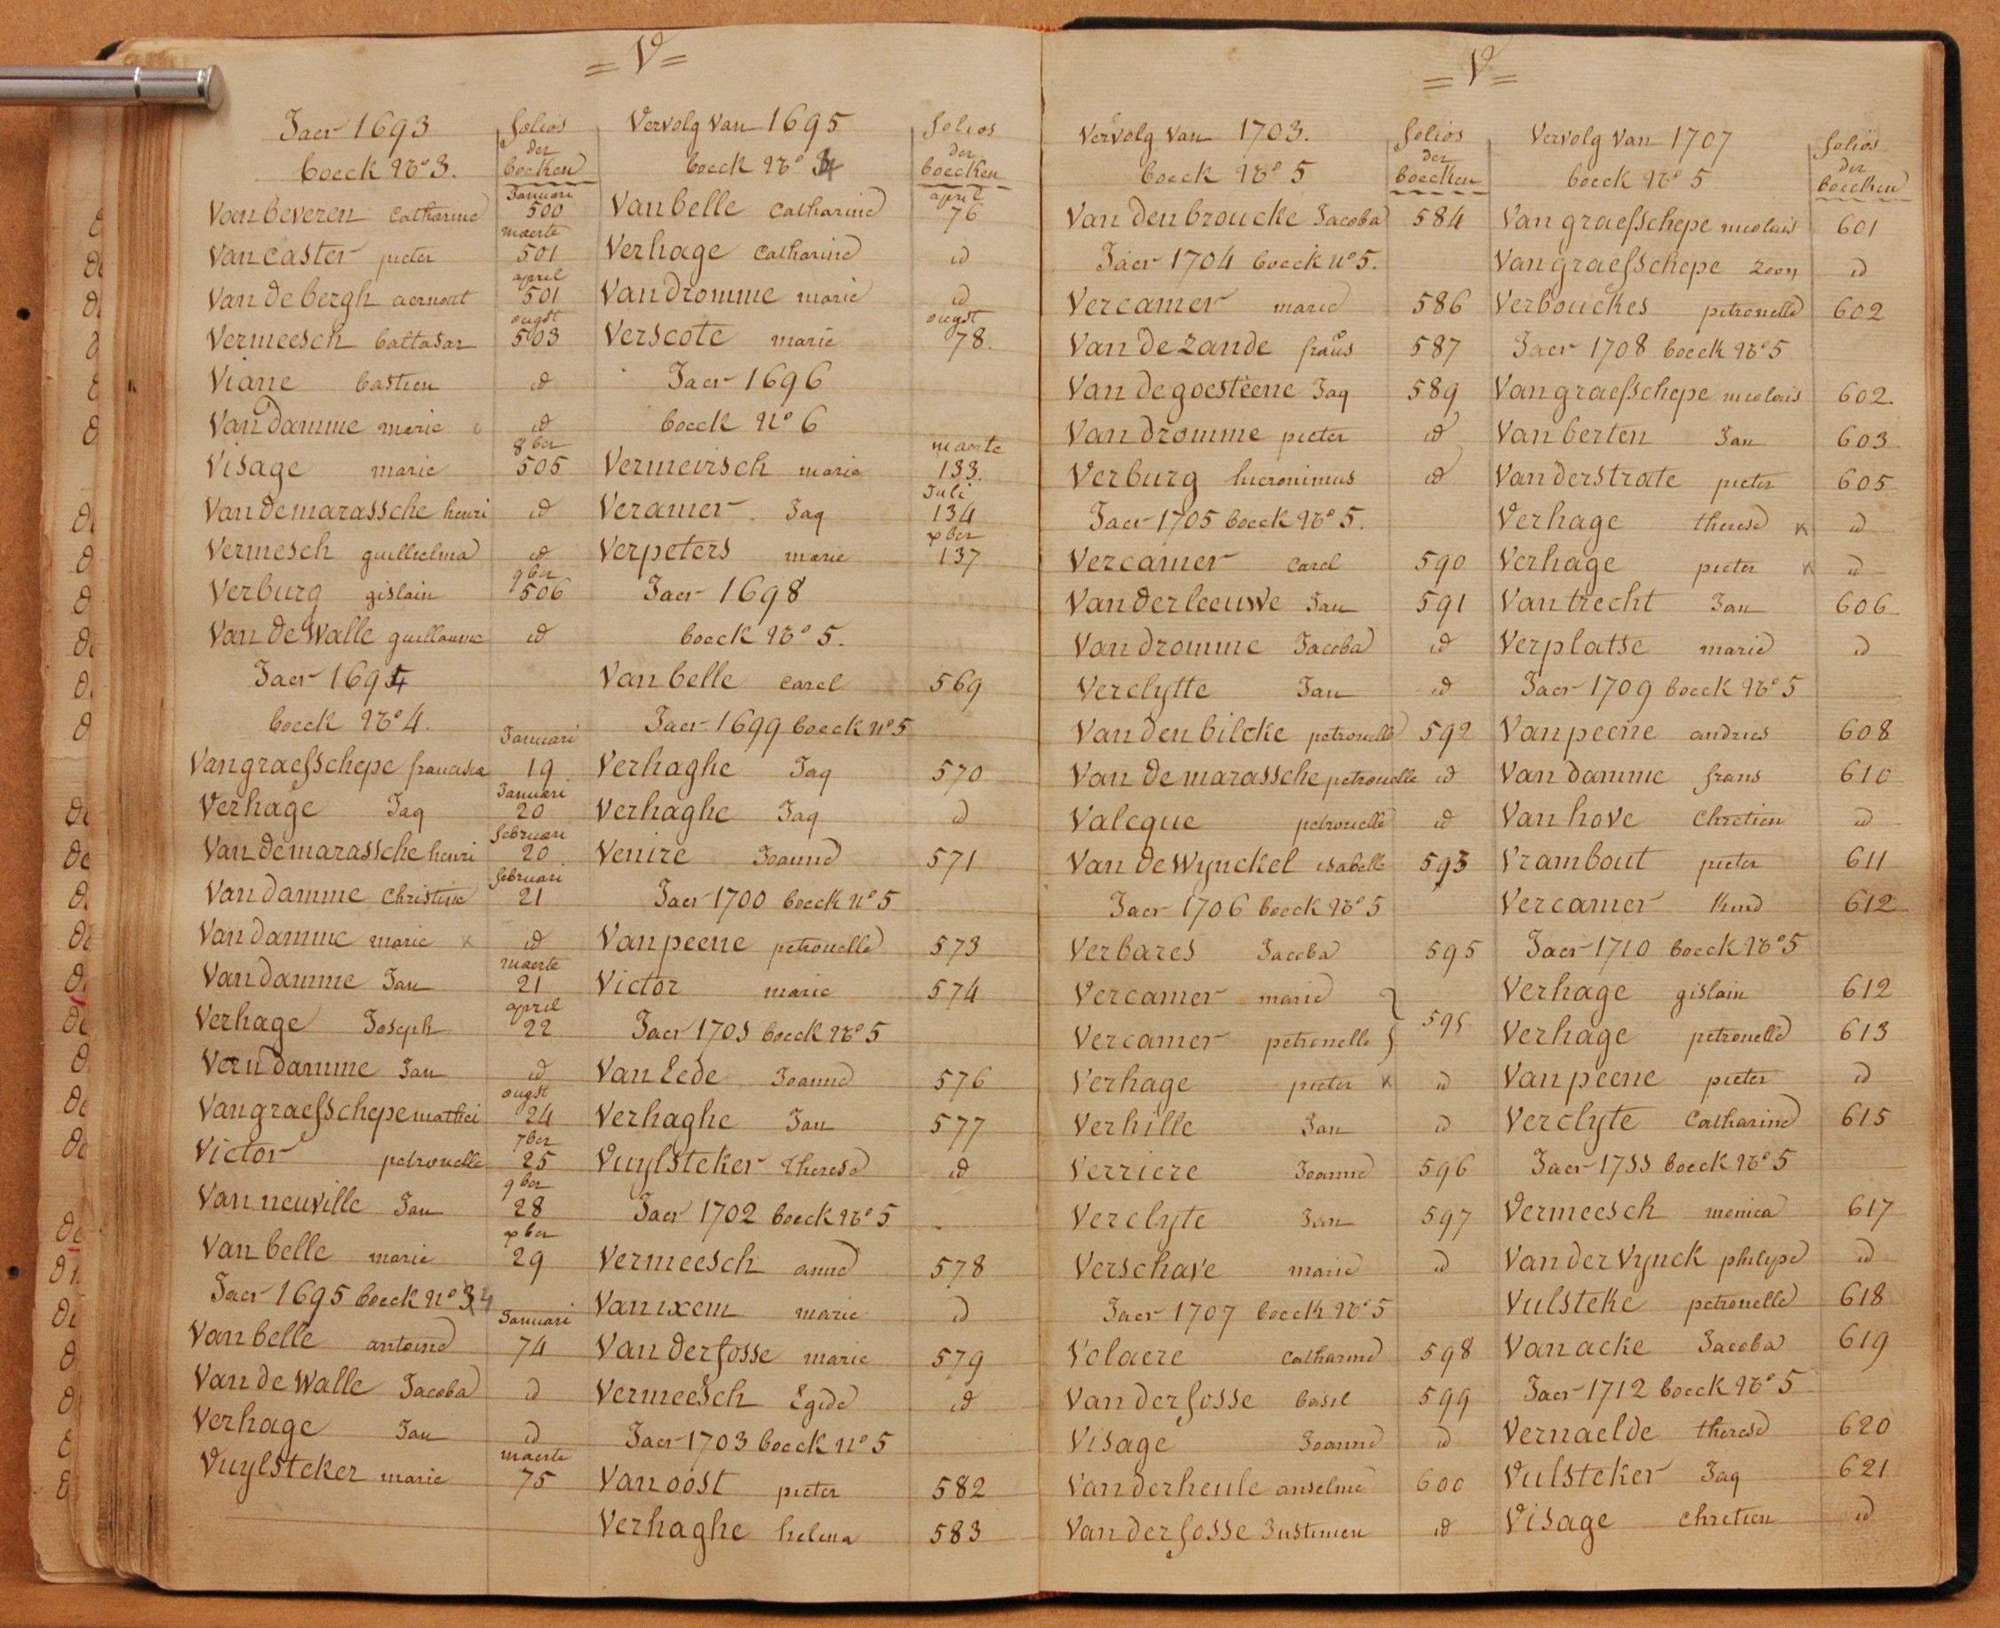 = V =
Jaer 1693
boeck No 3.
folios
der
boecken
Januari
Van beveren Catharine 500
maerte
Van Caster pieter 501
april
Van de bergh aernout 501
ougst
Vermeesch baltasar 503
Viane bastien id
Van Damme marie id
8ber
Visage marie 505
Van Demarassche henri id
Vermesch guillielma id
9ber
Verburg gislain 506
Van De Walle guillaume id
Jaer 1694
boeck No 4.
Januari
Van graefschepe francisca 19
Januari
Verhage Jaq 20
februari
Van demarassche henri 20
februari
Van damme Christine 21
Van damme marie x id
maerte
Van damme Jan 21
april
Verhage Joseph 22
Damme Jan id
ougst
Van graefschepe mathei 24
7ber
Victor petronelle 25
9ber
Van neuville Jan 28
xber
Van belle marie 29
Jaer 1695 boeck No 4
Januari
Van belle antoine 74
Van de Walle Jacoba id
Verhage Jan id
maerte
Vuylsteker marie 75
Vervolg van 1695
boeck No 4
folios
der
boecken
april
Van belle Catharine 76
Verhage Catharine id
Van Dromme marie id
ougst
Verscote marie 78.
Jaer 1696
boeck No 6
maerte
Vermeirsch marie 133.
Juli
Veramer Jaq 134
xber
Verpeters marie 137
Jaer 1698
boeck No 5.
Van belle Carel 569
Jaer 1699 boeck No 5
Verhaghe Jaq 570
Verhaghe Jaq id
Venire Joanne 571
Jaer 1700 boeck No 5
Van peene petronelle 573
Victor marie 574
Jaer 1701 boeck No 5
Van Eede Joanne 576
Verhaghe Jan 577
Vuylsteker therese id
Jaer 1702 boeck No 5
Vermeesch anne 578
Van ixem marie id
Van der fosse marie 579
Vermeesch Egide id
Jaer 1703 boeck No 5
Van oost pieter 582
Verhaghe helena 583
= V =
Vervolg van 1703.
boeck No 5
folios
der
boecken
Van den broucke Jacoba 584
Jaer 1704 boeck No 5.
Vercamer marie 586
Van De Zande fraûs 587
Van de goesteene Jaq 589
Van Dromme pieter id
Verburg hieronimus id
Jaer 1705 boeck No 5.
Vercamer Carel 590
Van der leeuwe Jan 591
Van dromme Jacoba id
Verclytte Jan id
Van den bilcke petronelle 592
Van de marassche petronelle id
Valcque petronelle id
Van de Wynckel isabelle 593
Jaer 1706 boeck No 5
Verbares Jacoba 595
Vercamer marie }
Vercamer petronelle } 595
Verhage pieter x id
Verhille Jan id
Verriere Joanne 596
Verclyte Jan 597
Verschave marie id
Jaer 1707 boeck No 5
Velaere Catharine 598
Van der fosse basil 599
Visage Joanne id
Van der heule anselme 600
Van der fosse Justinien id
Vervolg van 1707
boeck No 5
folios
der
boecken
Van graefschepe nicolais 601
Van graefschepe Zoon id
Verbouckes petronelle 602
Jaer 1708 boeck No 5
Van graefschepe nicolais 602.
Van berten Jan 603
Van der strate pieter 605
Verhage therese x id
Verhage pieter x id
Van trecht Jan 606
Verplatse marie id
Jaer 1709 boeck No 5
Van peene andries 608
Van damme frans 610
Van hove Chretien id
Vrambout pieter 611
Vercamer kind 612
Jaer 1710 boeck No 5
Verhage gislain 612
Verhage petronelle 613
Van peene pieter id
Verclyte Catharine 615
Jaer 1711 boeck No 5
Vermeesch monica 617
Van der Vynck philype id
Vulsteke petronelle 618
Van acke Jacoba 619
Jaer 1712 boeck No 5
Vernaelde therese 620
Vulsteker Jaq 621
Visage Chretien id